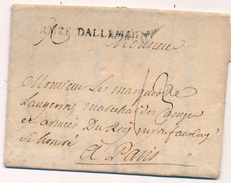 ARMEE DALLEMAGNE
Monsieur
Monsieur Le marquis de
Langeron, marechal des Camps
et armées Du Roy rue du faubourg
St honoré
A Paris